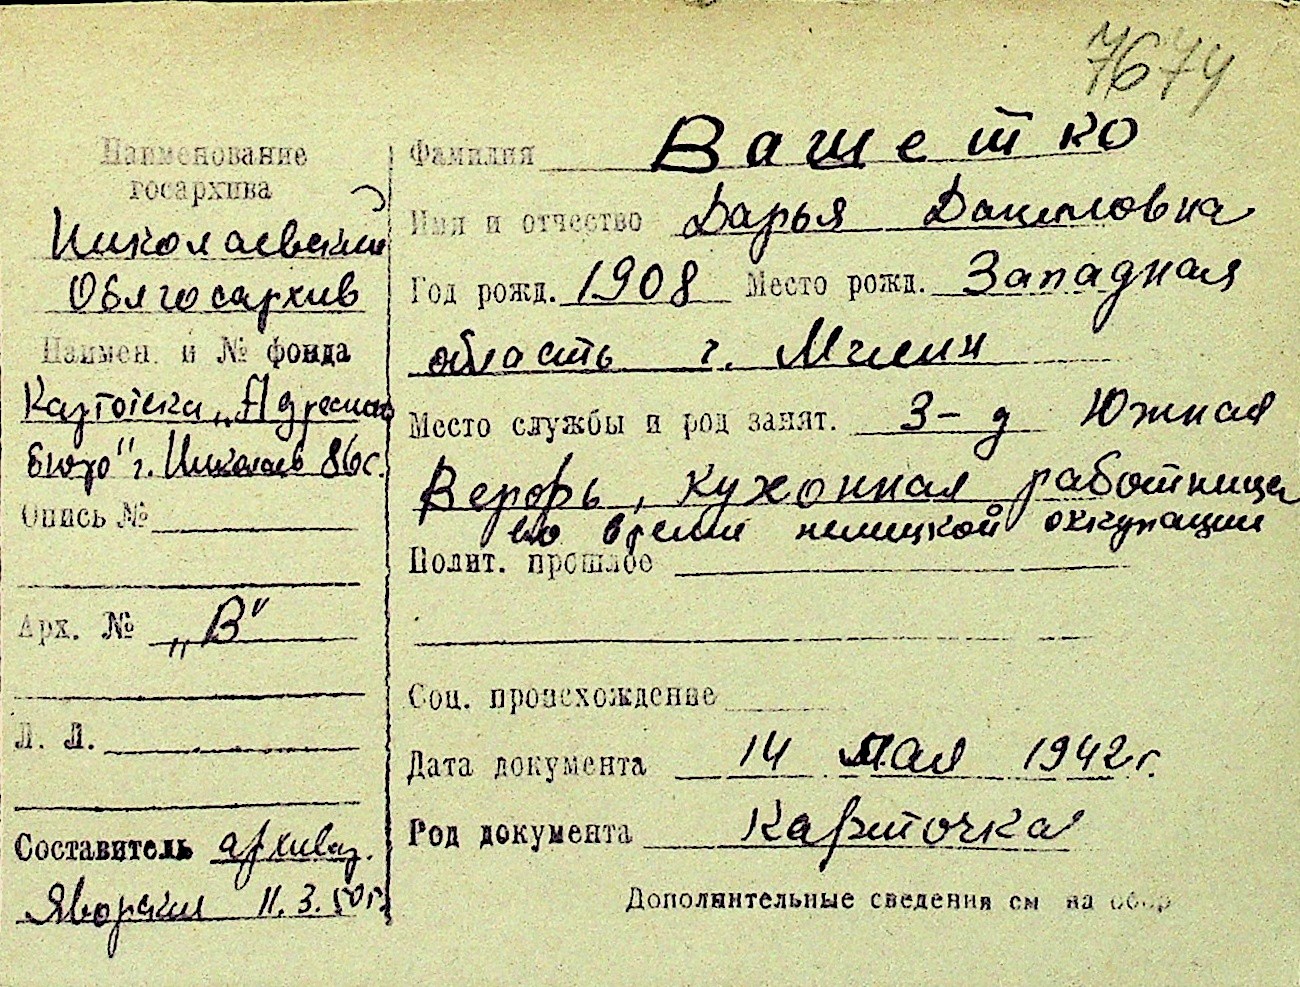 7674
Наименование
госархива
Николаевский
Облгосархив
Наимен. и № фонда
Картотека „Адресного
бюро" г. Николаев 86 с.
Опись №
Арх. № „В"
Л. Л.
Составитель архивар.
Яворский 11.3.50 г.
Фамилия Вашетко
Имя и отчество Дарья Даниловна
Год рожд. 1908 Место рожд. Западная
область г. Мглин
Место службы и род занят. З-д Южная
Верфь, кухонная работница
во время немецкой оккупации
Полит. прошлое
Соц. происхождение
Дата документа 14 мая 1942 г.
Род документа Карточка
Дополнительные сведения см на обор